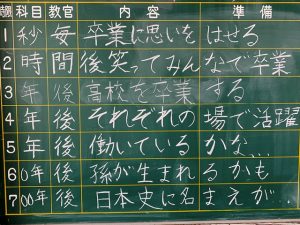 科目 教官 内容 準備
1 秒 毎 卒業に思いを はせる
2 時間 後 笑ってみんなで卒業
3 年 後 高校を卒業する
4 年 後 それぞれの場で活躍
5 年 後 働いているかな...
6 0年 後 孫が生まれるかも
7 00年 後 日本史に名まえが..